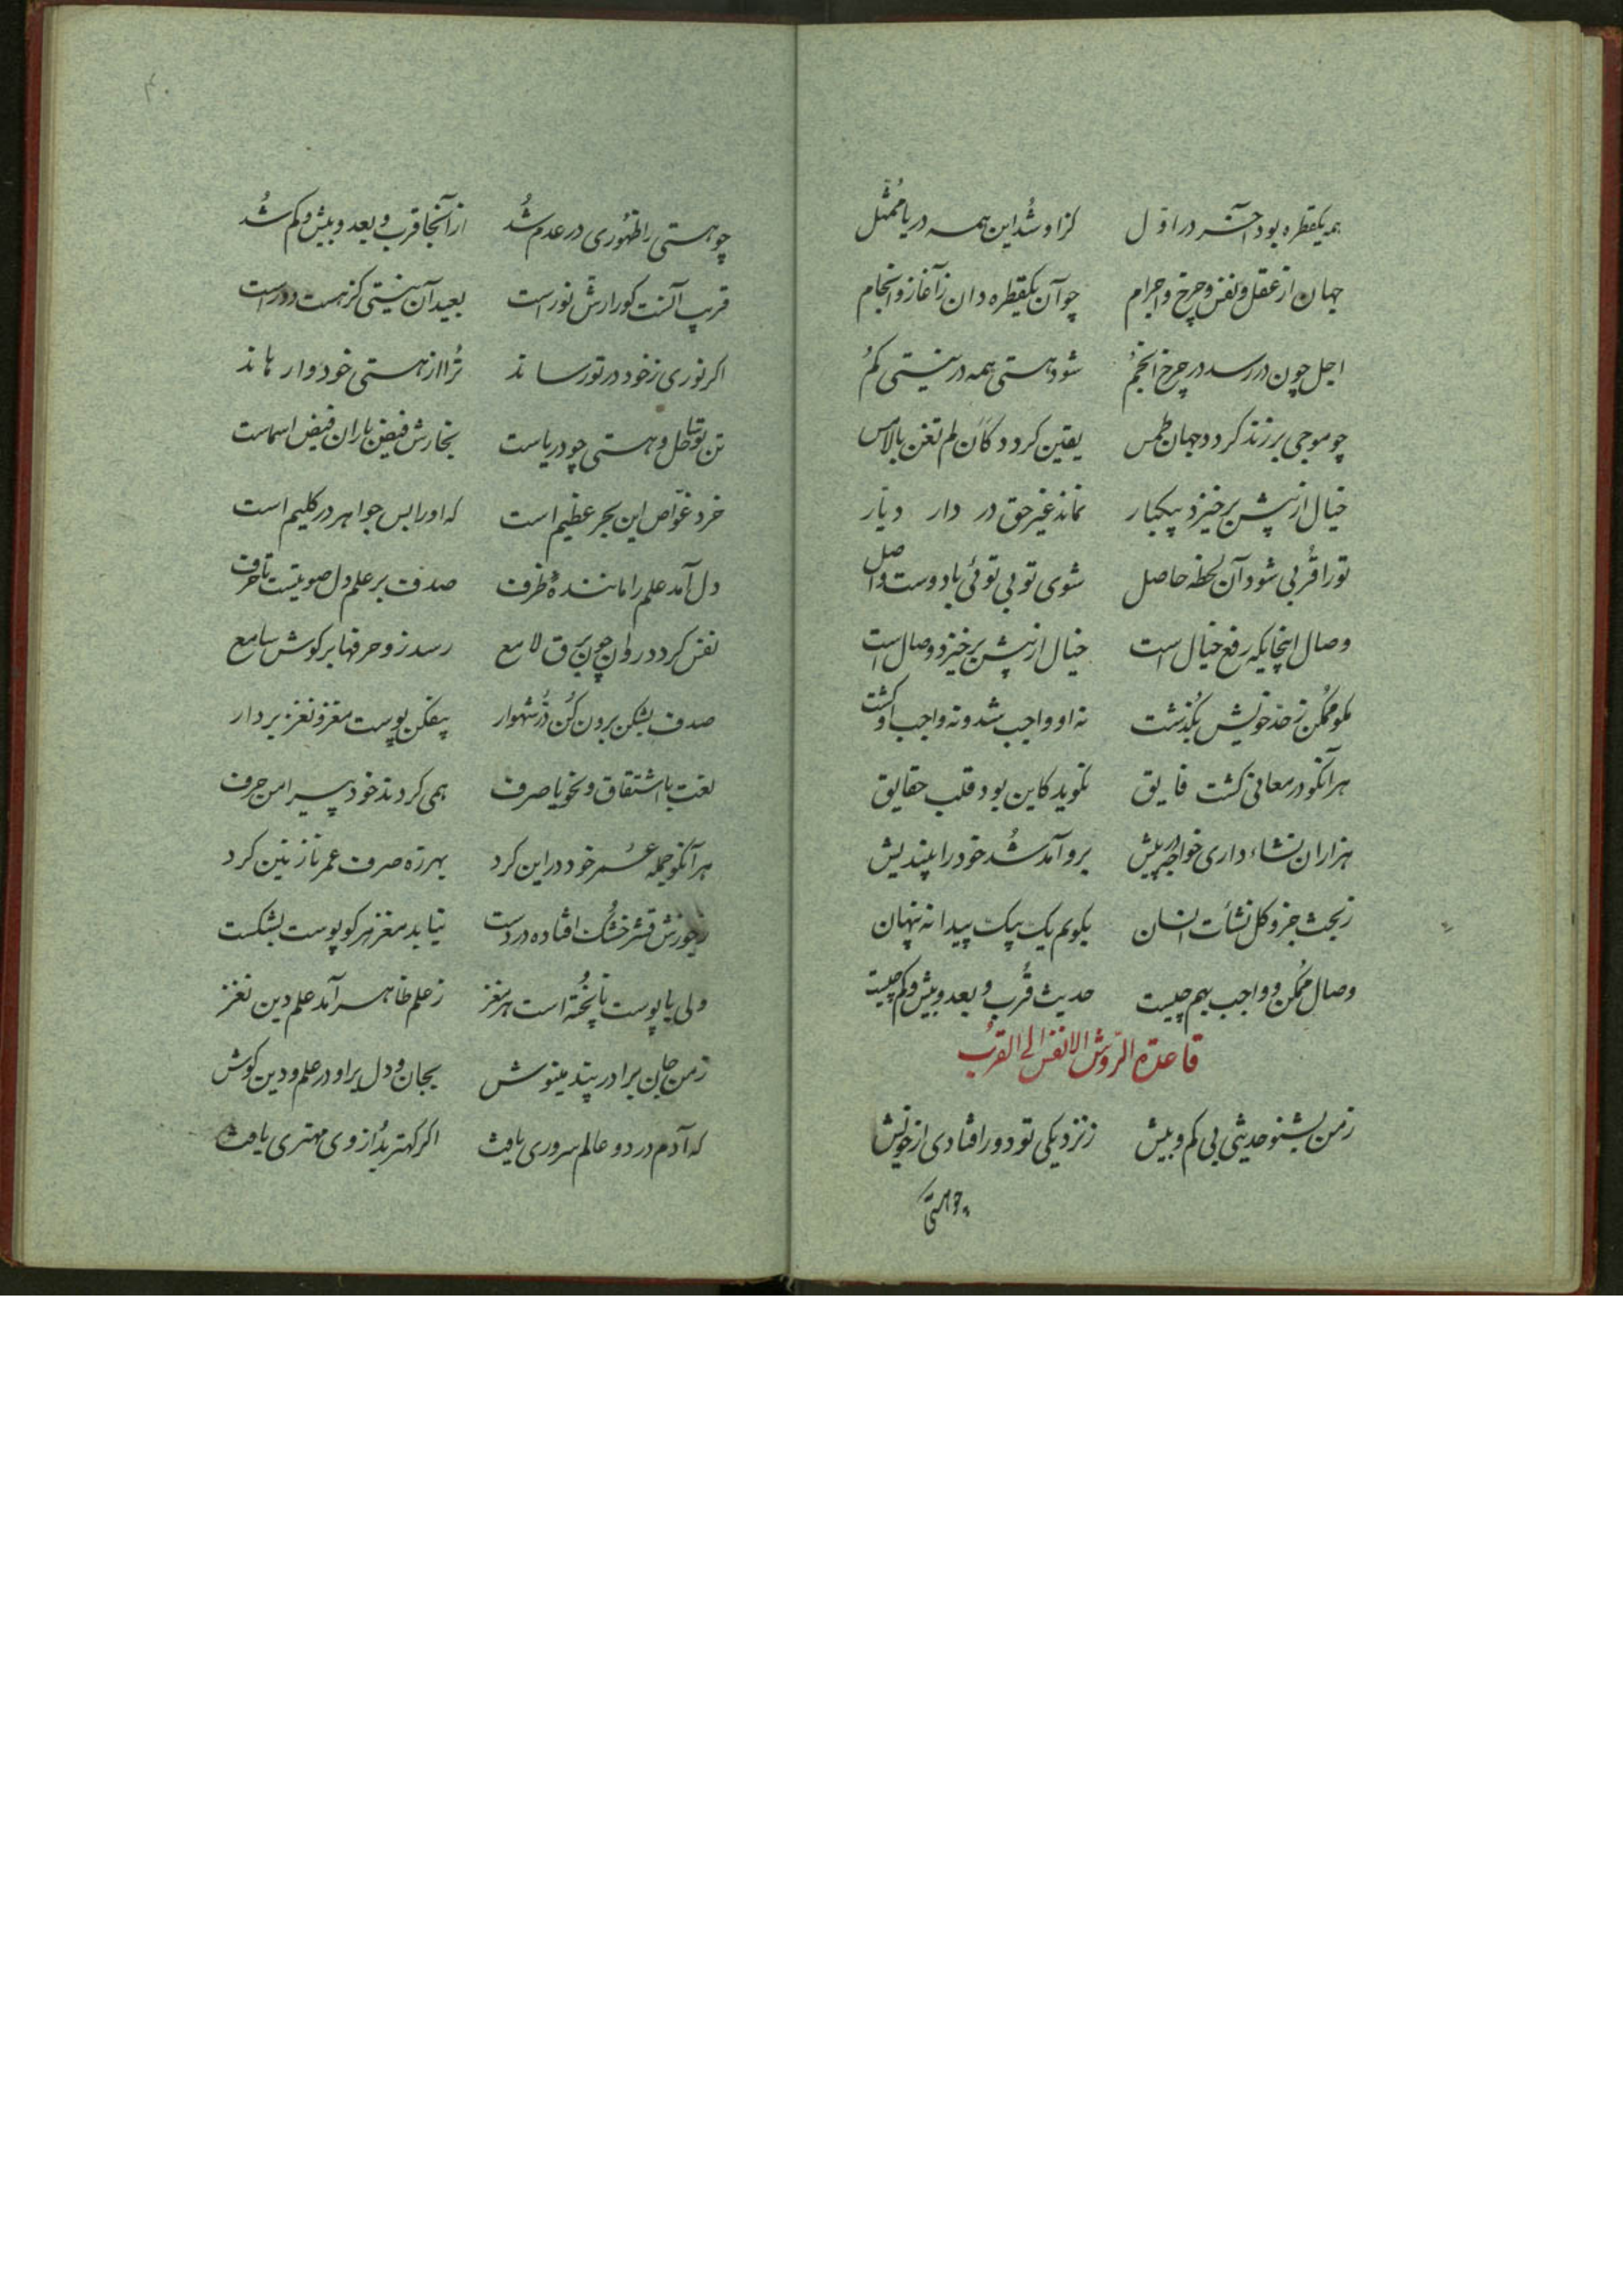 همه یکقطره بود آخر در اول کزا و شُد این همه دریا مُمثّل
جهان از عقل و نفس و چرخ و اجرام چو آن یکقطره دان ز آغاز و انجام
اجل چون در رسد در چرخ و انجُم شود هستی همه در نیستی کُم
چو موجی برزند کردد جهان طمس یقین کردد کَاَن لم تغن بالامس
خیال از پیش برخیزد بیکبار نماند غیر حق در دار دیّار
تو را قُربی شود آن لحظه حاصل شوی تو بی توئی با دوست واصل
وصال اینجایکه رفع خیال است خیال از پیش برخیزد وصال است
مکو مُمکن ز حد خویش بگذشت نه او واجب شد و نه واجب او کشت
هر آنکو در معانی کشت فایق نکوید کاین بود قلب حقایق
هزاران نشاء داری خواجه در پیش برو آمد شُد خود را بیندیش
ز بحث جزو کل نشأت انسان بکویم یک بیک پیدا نه پنهان
وصال مُمکن و واجب بهم چیست حدیث قُرب و بعد و بیش و کم چیست
قاعدة الرّوش الانفس الی القرب
ز من بشنو حدیثی بی کم و بیش ز نزدیکی تو دور افتادی از خویش
چو هستی
چو هستی را ظهُوری در عدم شُد از آنجا قرب و بعد و بیش و کم شُد
قریب آنست کورا رش نور است بعید آن نیستی کز هست دور است
اکر نوری ز خود در تو رساند تُرا از هستی خود وارهاند
تن تو ساحل و هستی چو دریاست بخارش فیض باران فیض اسماست
خرد غوّاص این بحر عظیم است که او را بس جواهر در کلیم است
دل آمد علم را مانندهٔ ظرف صدف بر علم دل صوتیست تا حرف
نفس کردد روان چون برق لامع رسد زو حرفها بر کوش سامع
صدف بشکن برون کُن دُرّ شهوار بیفکن پوست مغز و نغز بردار
لغت با اشتقاق و نحو با صرف همی کردند خود پیرامن حرف
هر آنکو جمله عُمر خود در این کرد بهرزه صرف عمر نازنین کرد
ز جوزش قشر خشُک افتاده در دست نیابد مغز هر کو پوست بشکست
ولی با پوست ناپُخته است هر مغز ز علم ظاهر آمد علم دین نغز
ز من جان برادر پند مینوش بجان و دل برا و در علم و دین کوش
که آدم در دو عالم سروری یافت اکر کهتر بُد از وی مهتری یافت